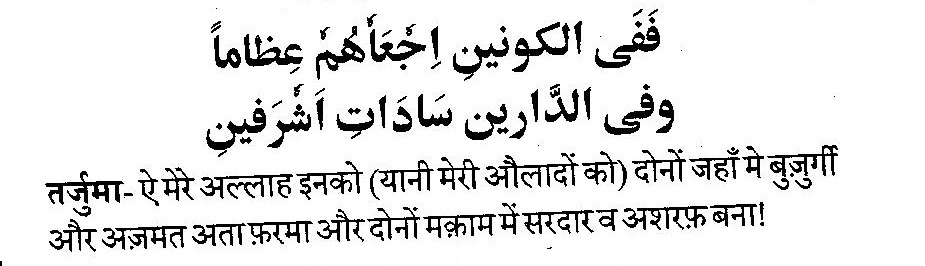 فَفَى الكونينِ اِجْعَأْهُمْ عِظاماً
وفى الدَّارين سَادَاتِ اَشْرَفينِ
तर्जुमा- ऐ मेरे अल्लाह इनको (यानी मेरी औलादों को) दोनों जहाँ मे बुज़ुर्गी
और अज़मत अता फ़रमा और दोनों मक़ाम में सरदार व अशरफ़ बना!